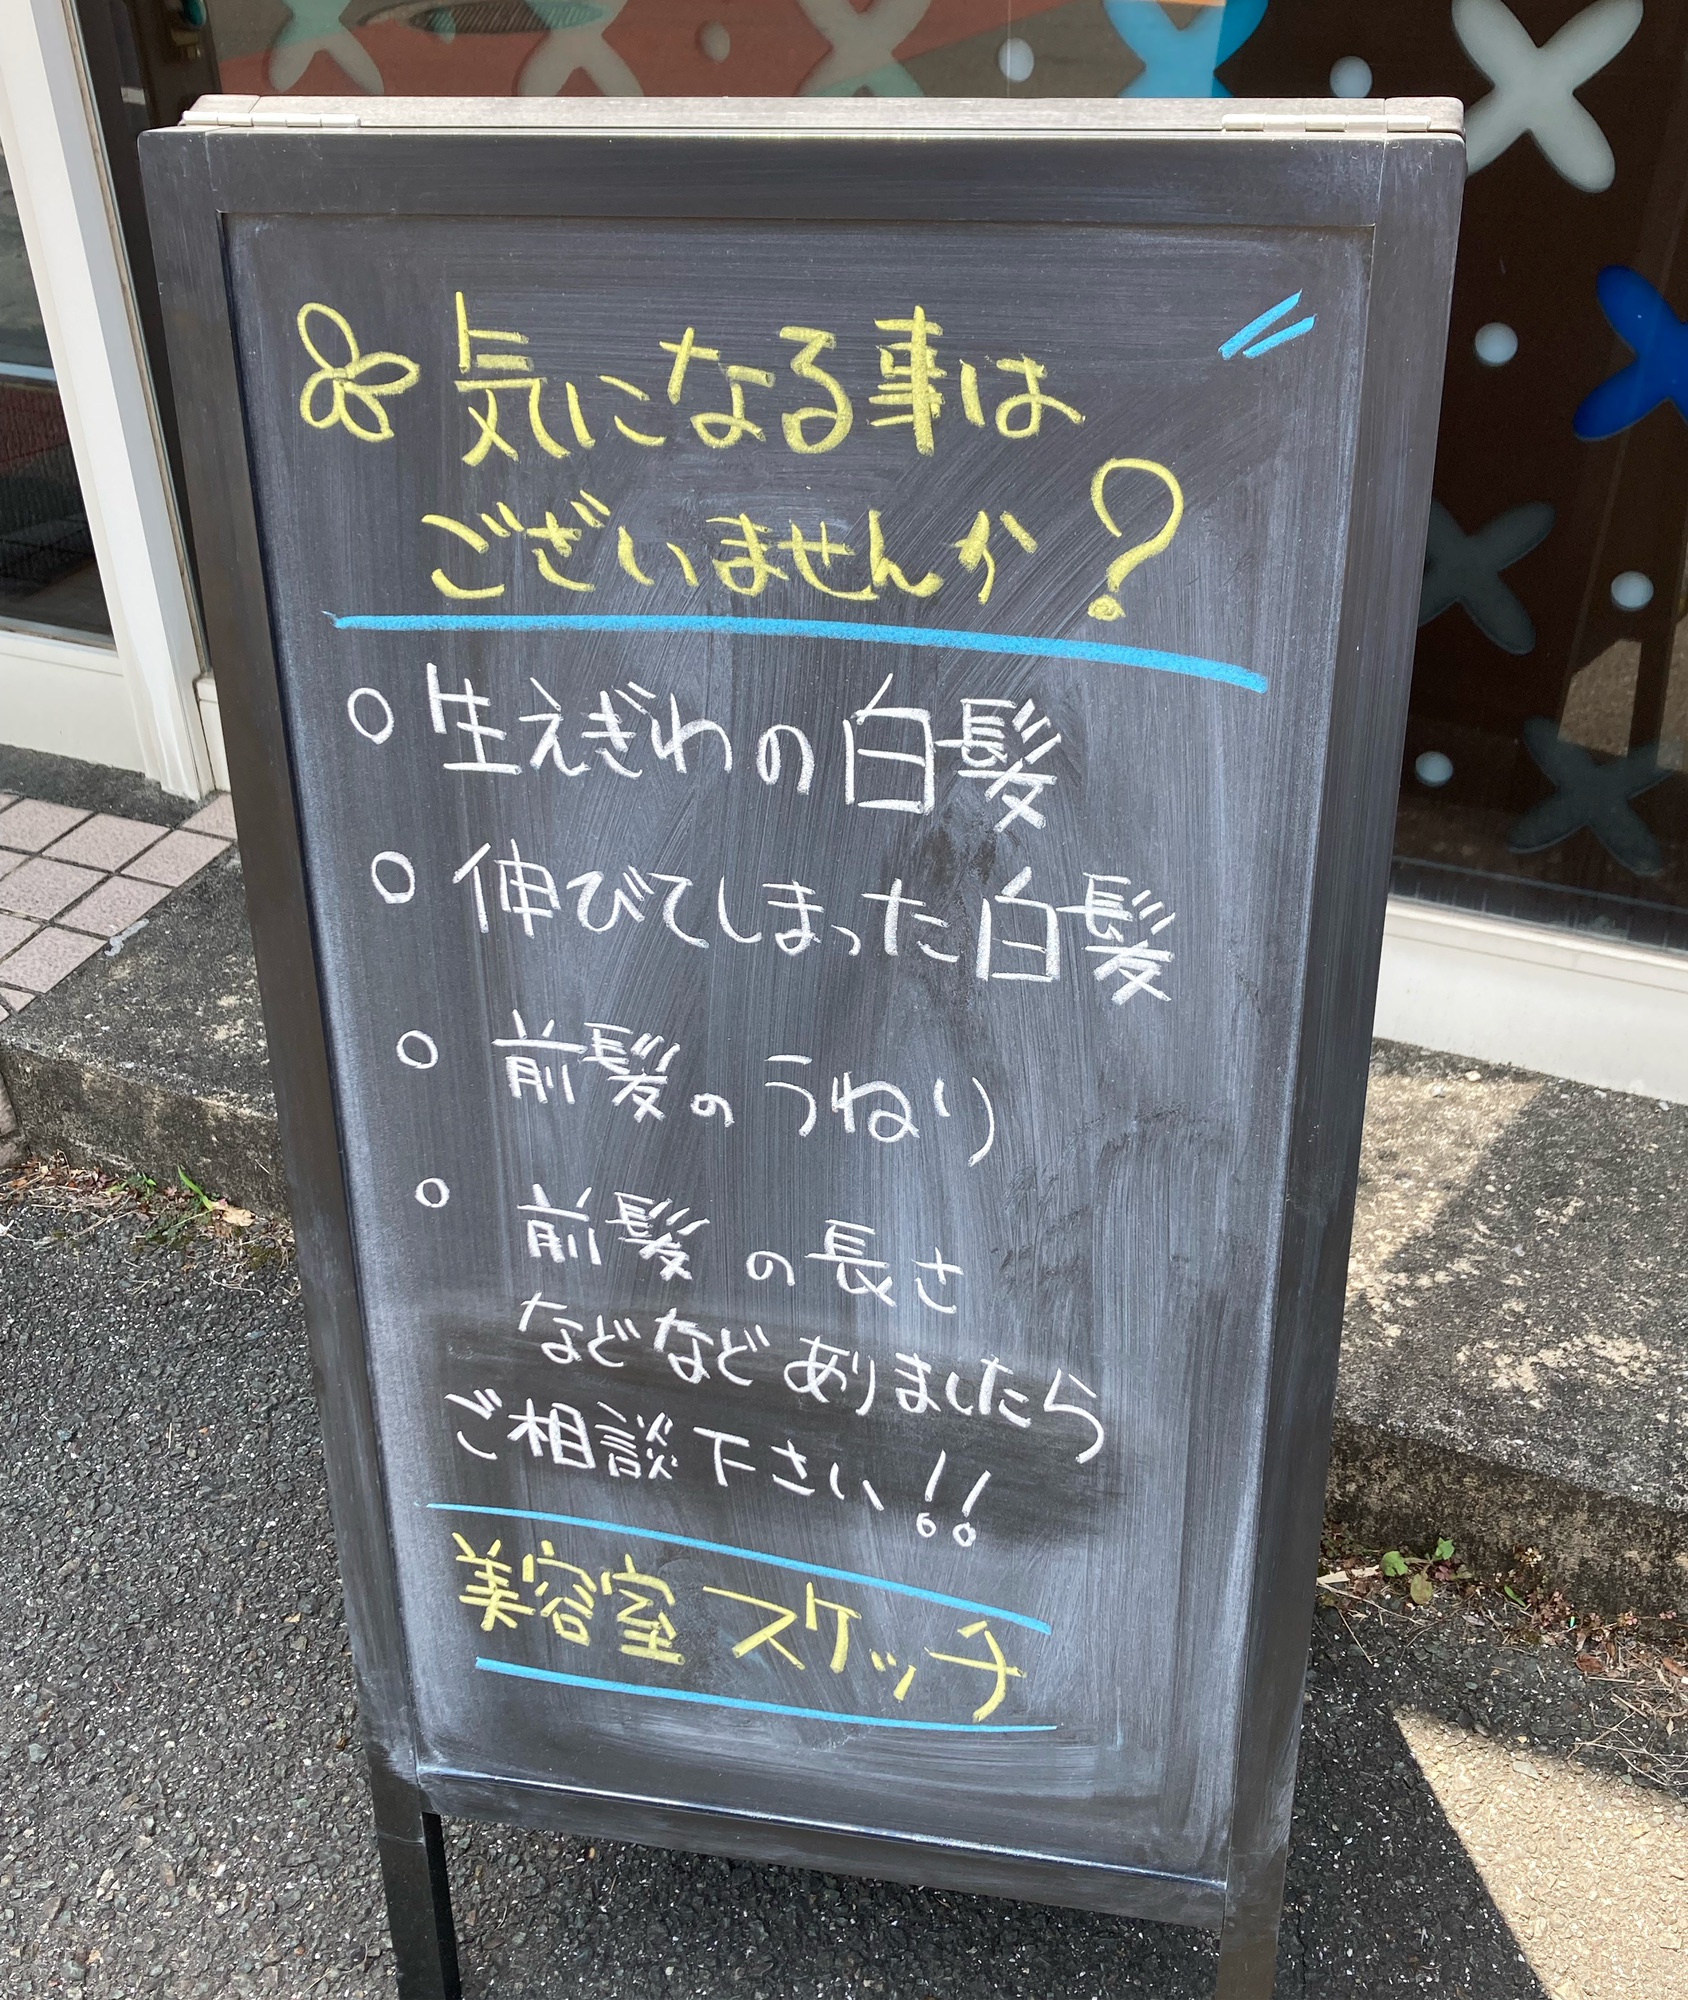 気になる事は
ございませんか?
○ 生えぎわの白髪
○ 伸びてしまった白髪
○ 前髪のうねり
○ 前髪の長さ
などなどありましたら
ご相談下さい!!
美容室スケッチ